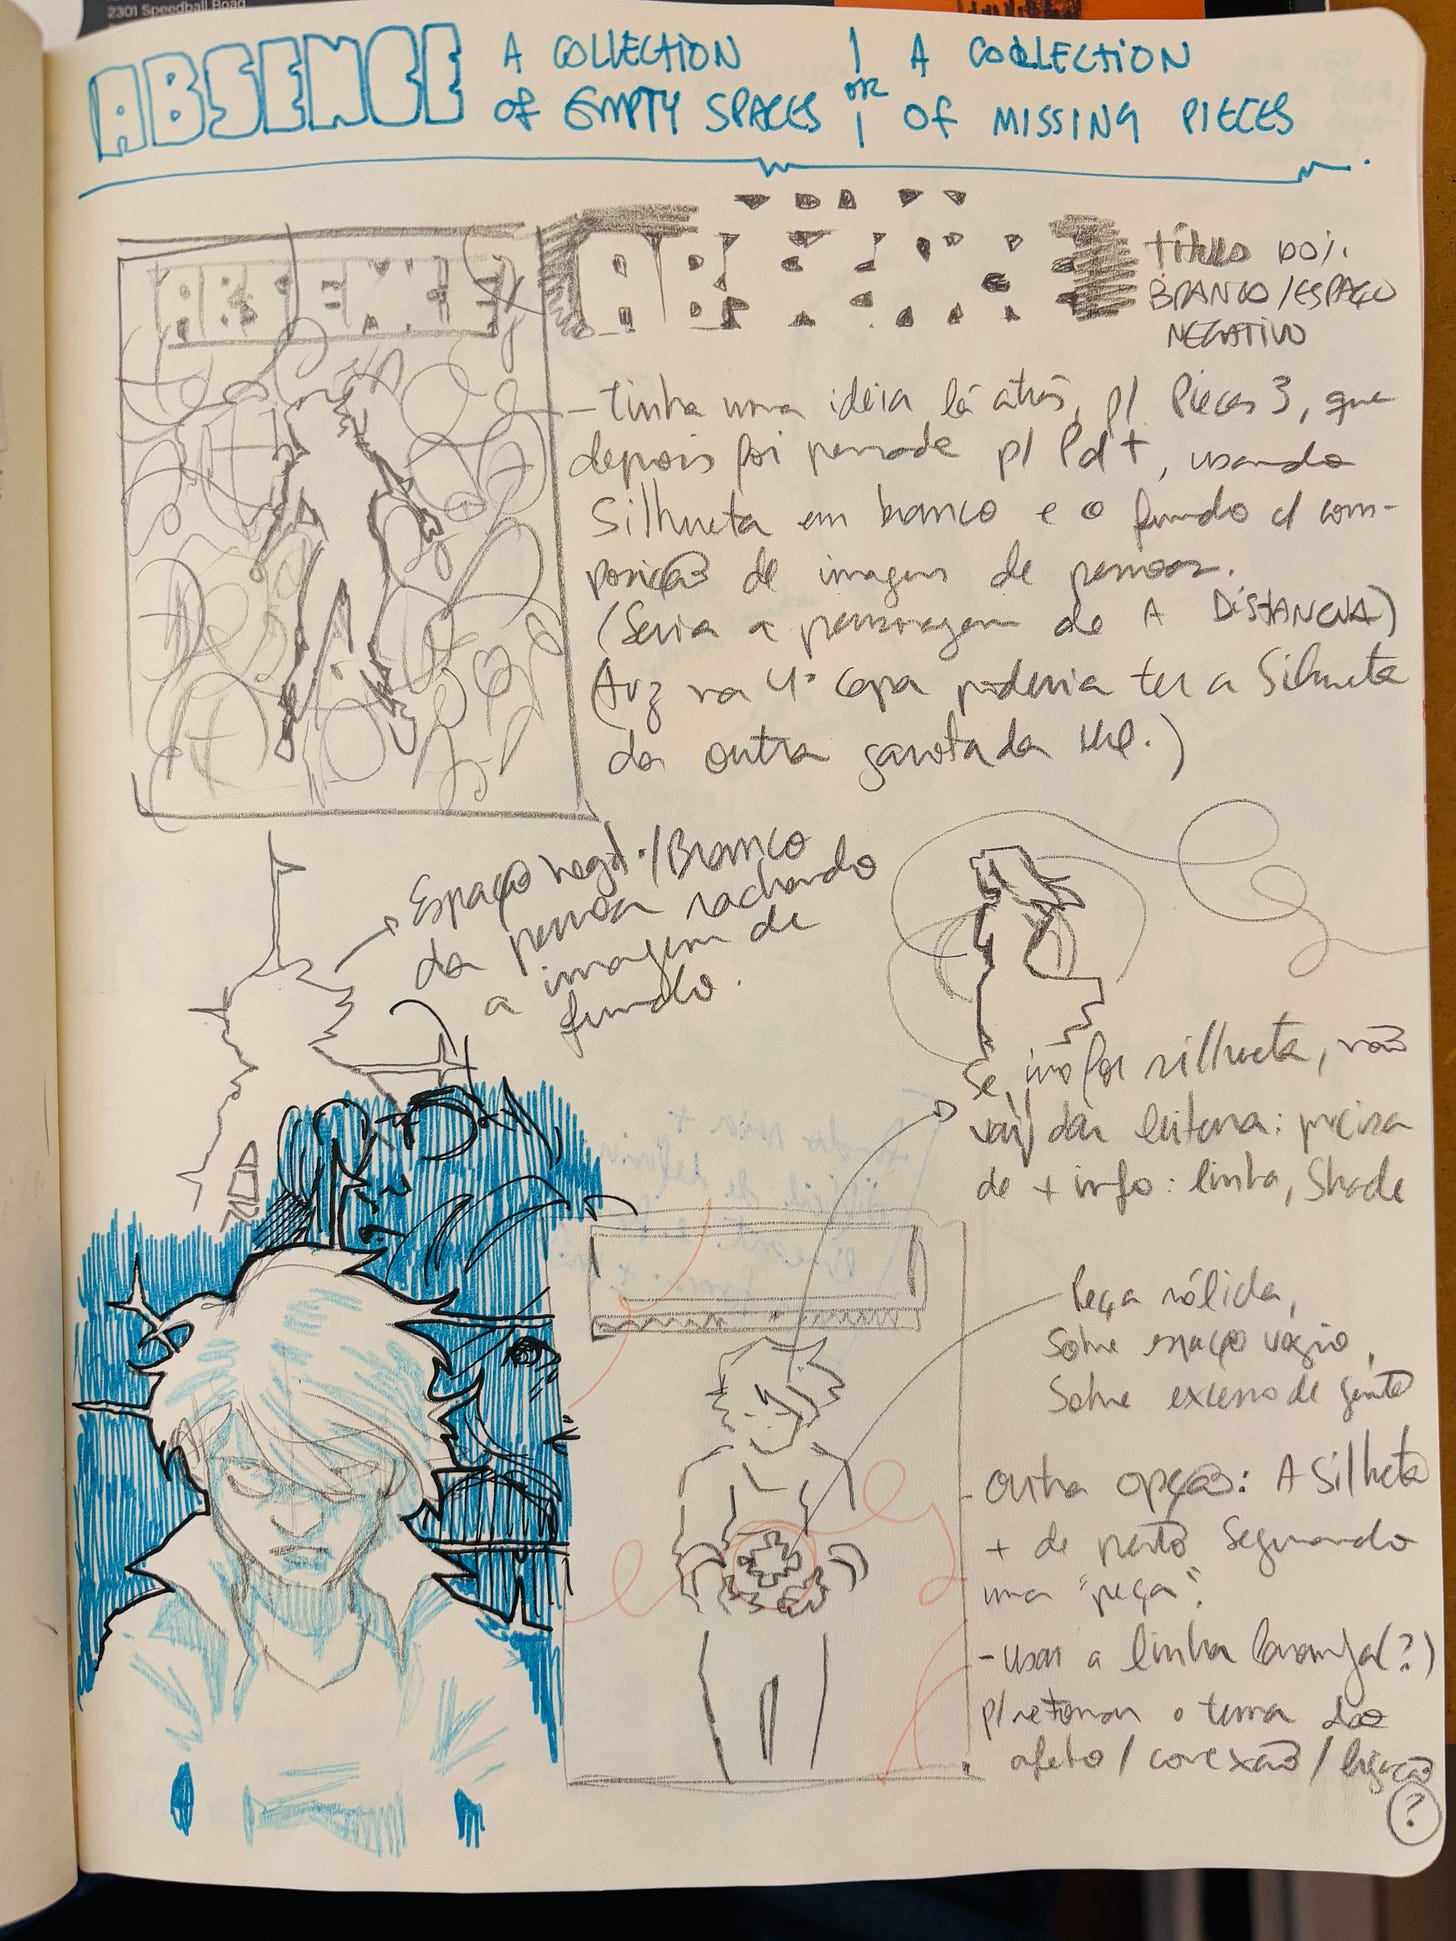 2301 Speedball Road
ABSENCE A COLLECTION OF EMPTY SPACES
OR
A COLLECTION OF MISSING PIECES
ABSENCE
AB
título 100%
BRANCO/ESPAÇO
NEGATIVO
- tinha uma ideia lá atrás, p/ Pieces 3, que
depois foi pensada p/ Pd+, usando
silhueta em branco e o fundo c/ com-
posição de imagens de pessoas.
(Seria a personagem de A DISTÂNCIA)
(Arz na 4ª capa poderia ter a silhueta
da outra garota da HQ.)
Espaço negat./Branco
da pessoa rachando
a imagem de
fundo.
Se não for silhueta, não
vai dar leitura: precisa
de + info: linha, Shade
Peça sólida,
Sobre espaço vazio,
Sobre excesso de gente
- outra opção: A Silhueta
+ de perto segurando
uma "peça".
- usar a linha laranja(?)
p/ retomar o tema do
afeto/conexão/ligação
?